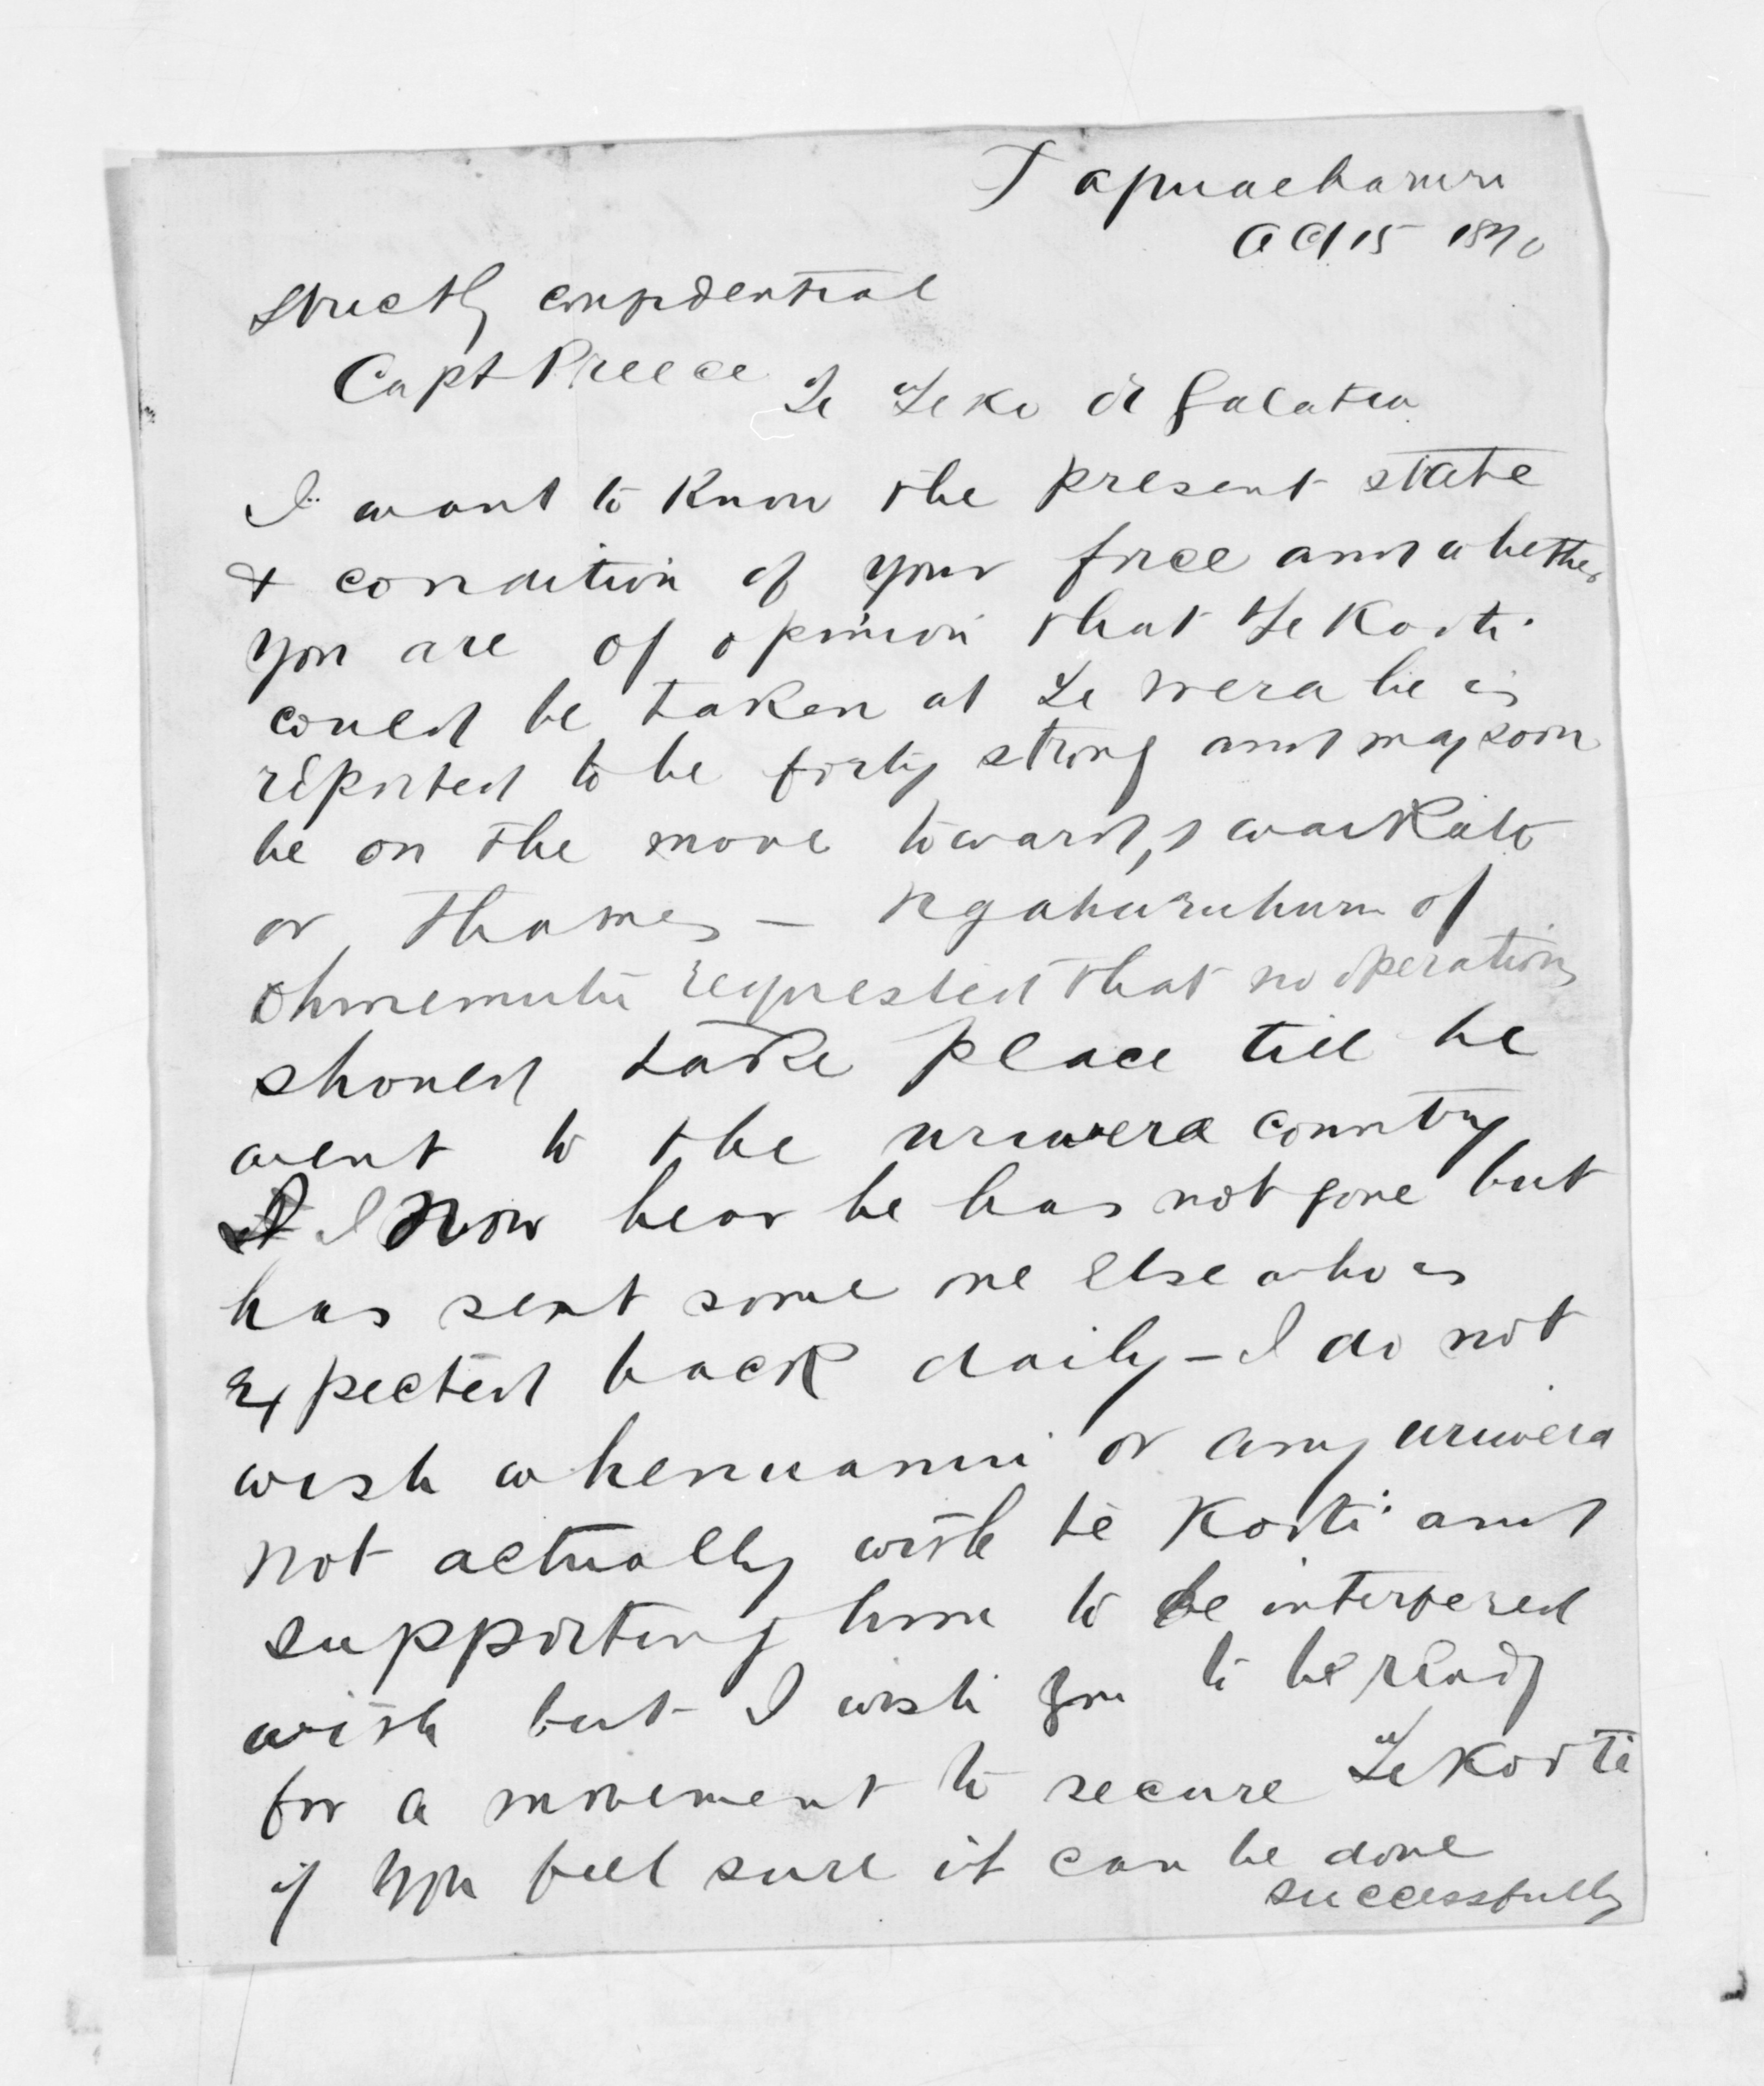 Tapuaeharuru
Oct 15 1870
Strictly confidential
Capt Preece Te Teko or Galatea
I want to know the present state
& condition of your force and whether
you are of opinion that Te Kooti
could be taken at Te Wera he is
reported to be forty strong and may soon
be on the move towards waikato
or Thames - Ngahuruhuru of
Ohinemutu requested that no operations
should take place till he
went to the uriwera country
I now hear he has not gone but
has sent some one else who is
expected back daily - I do not
wish whenuanui or any uriwera
not actually with te Kooti and
supporting him to be interfered
with but I wish you to be ready
for a movement to secure Te Kooti
if you feel sure it can be done
successfully